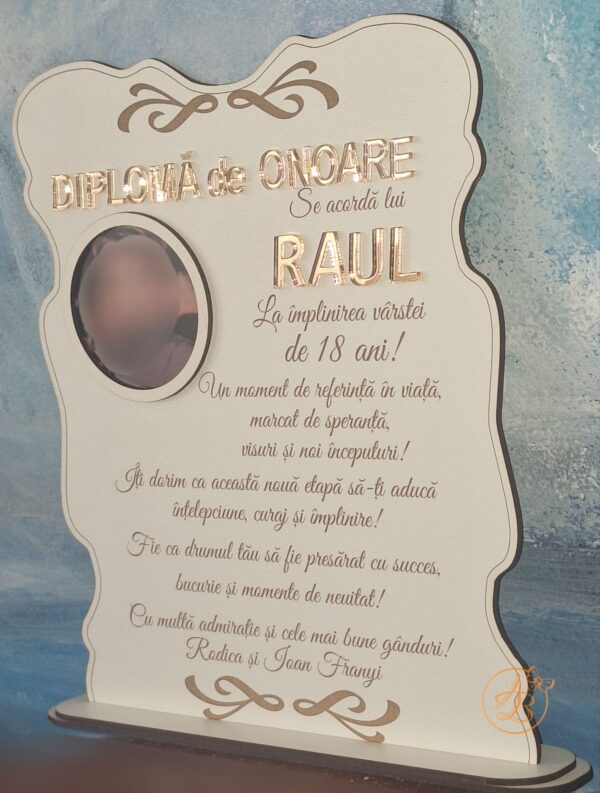 DIPLOMĂ de ONOARE
Se acordă lui
RAUL
La împlinirea vârstei
de 18 ani!
Un moment de referință în viață,
marcat de speranță,
visuri și noi începuturi!
Îți dorim ca această nouă etapă să-ți aducă
înțelepciune, curaj și împlinire!
Fie ca drumul tău să fie presărat cu succes,
bucurie și momente de neuitat!
Cu multă admirație și cele mai bune gânduri!
Rodica și Ioan Franyi